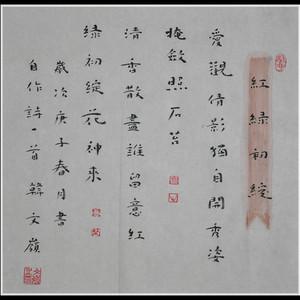 紅綠初綻
愛觀倩影獨自開秀姿
掩斂照石苔
清香散盡誰留意紅
綠初綻花神來
歲次庚子春月書
自作詩一首韓文嶺